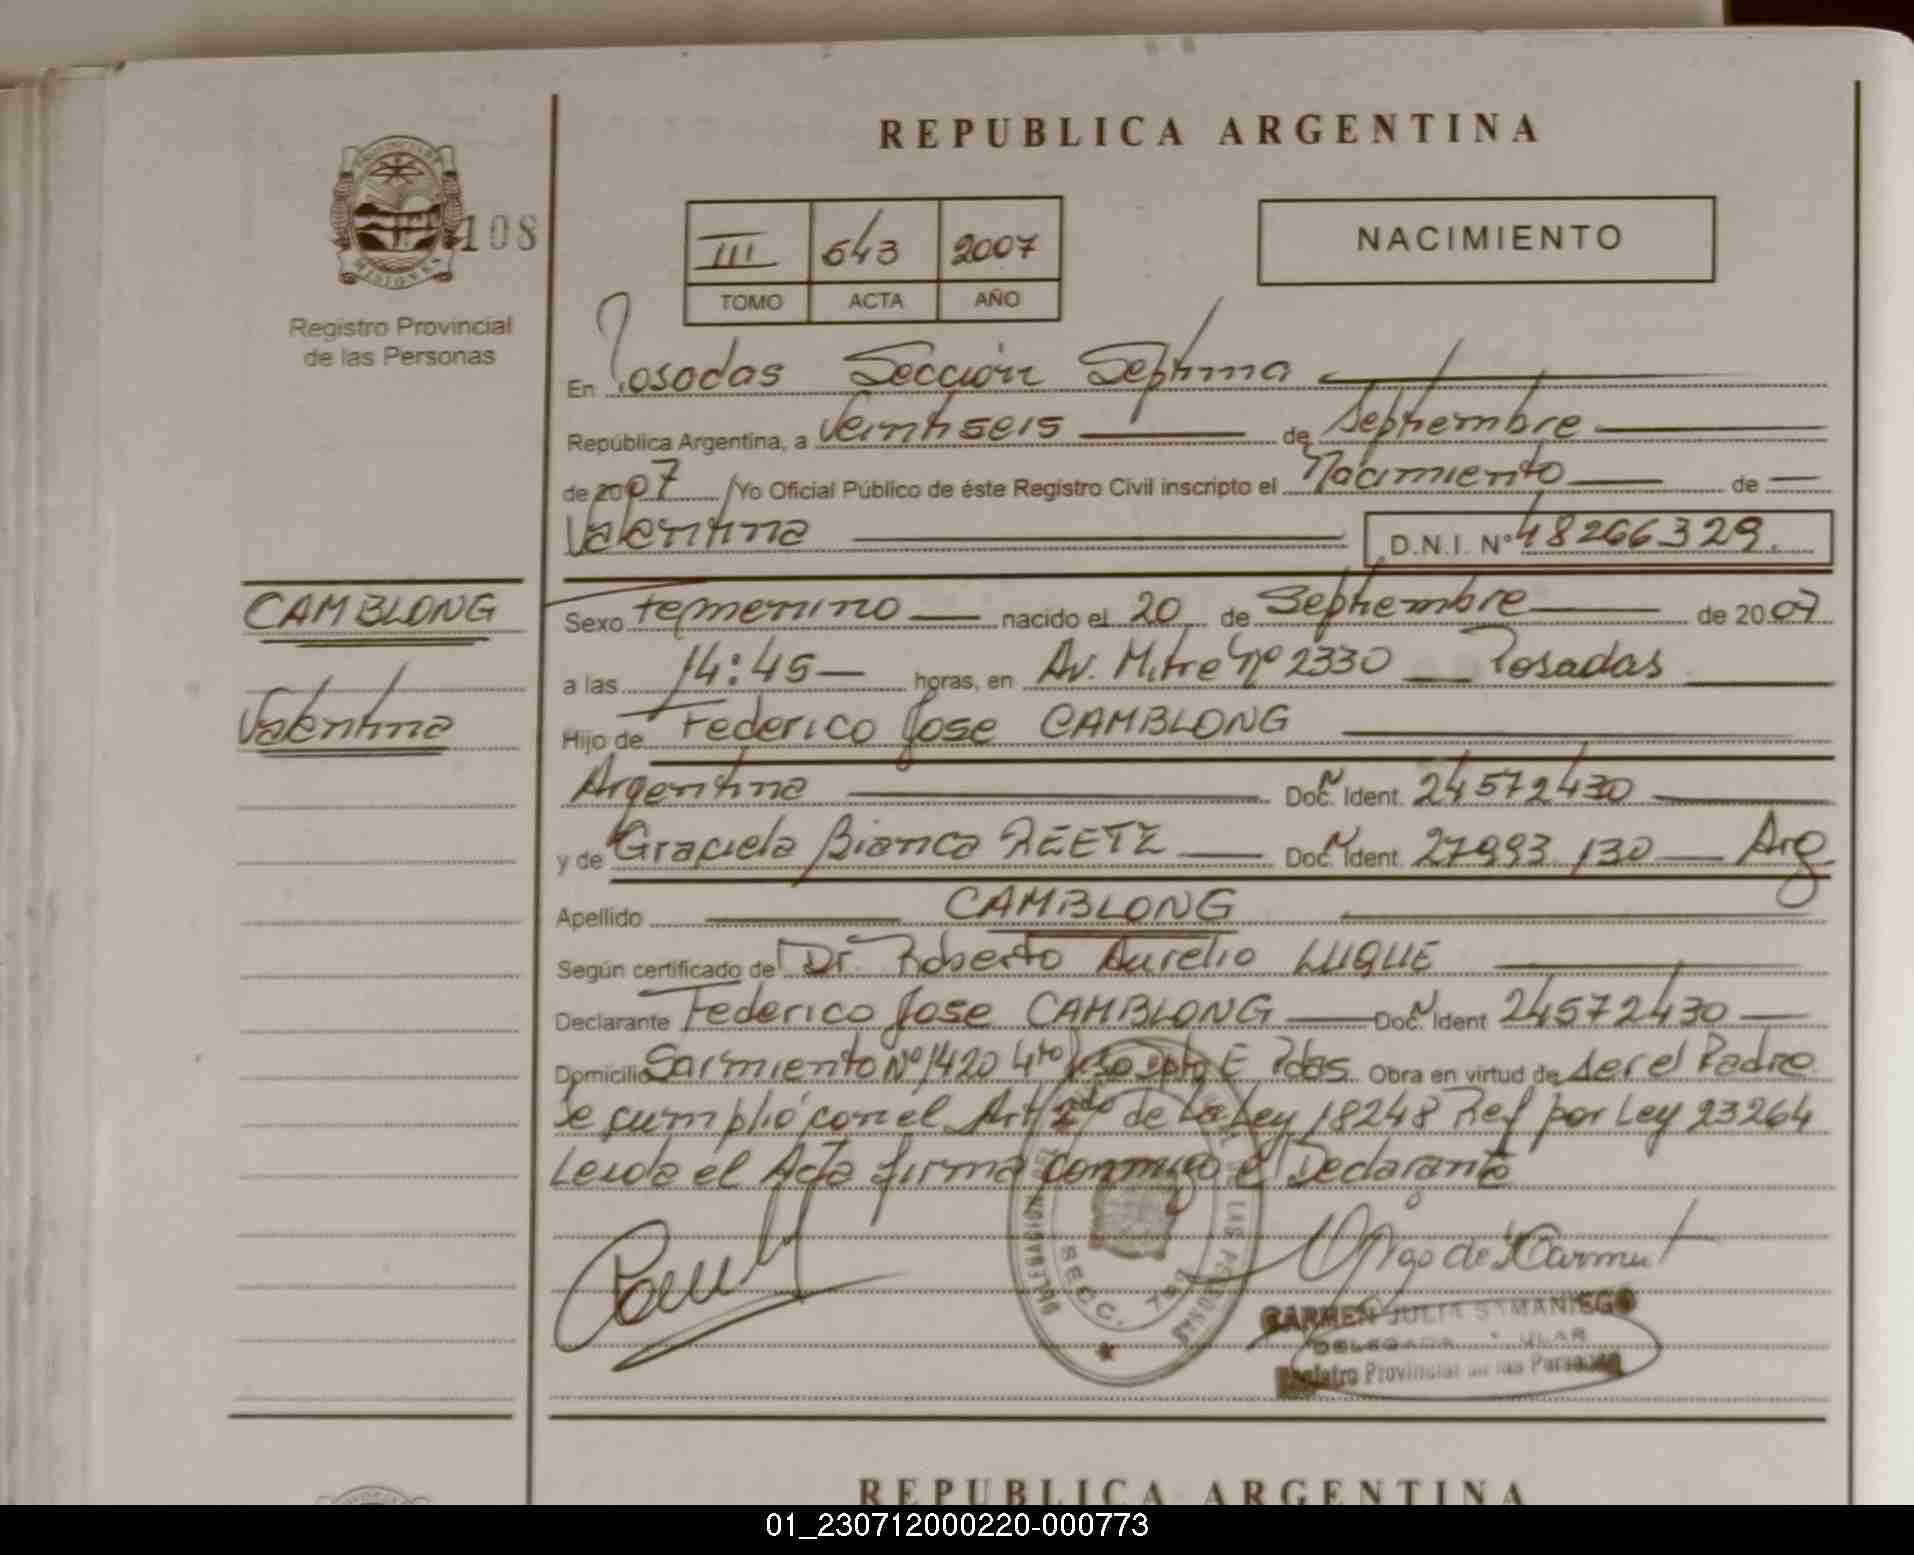 REPUBLICA ARGENTINA
PROVINCIA DE
MISIONES
108
Registro Provincial
de las Personas
III 643 2007
TOMO ACTA AÑO
NACIMIENTO
En Posadas Sección Septima
República Argentina, a Veintiseis de Septiembre
de 2007 Yo Oficial Público de éste Registro Civil inscripto el Nacimiento de
Valentina D.N.I. Nº 48266329.
CAMBLONG
Valentina
Sexo femenino nacido el 20 de Septiembre de 2007
a las 14:45 horas, en Av. Mitre Nº 2330 Posadas
Hijo de Federico Jose CAMBLONG
Argentina Doc. N Ident. 24572430
y de Graciela Bianca REETZ Doc. N Ident. 27993130 Arg
Apellido CAMBLONG
Según certificado de Dr. Roberto Aurelio LUQUE
Declarante Federico Jose CAMBLONG Doc. N Ident 24572430
Domicilio Sarmiento Nº 1420 4to piso Dpto E Pdas. Obra en virtud de ser el Padre
Se cumplió con el Art 2do de la Ley 18248 Ref por Ley 23264
Leida el Acta firma conmigo el Declarante
SECC. 7ma
LAS PERSONAS
CARMEN JULIA SAMANIEGO
DELEGADA TITULAR
Registro Provincial de las Personas
REPUBLICA ARGENTINA
01_230712000220-000773